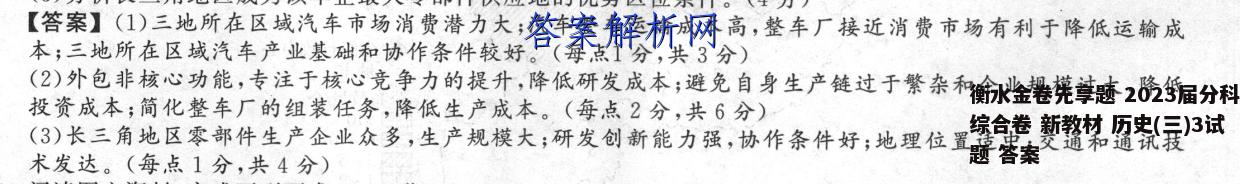 【答案】(1)三地所在区域汽车市场消费潜力大;整车运输成本高,整车厂接近消费市场有利于降低运输成
本;三地所在区域汽车产业基础和协作条件较好。(每点1分,共3分)
(2)外包非核心功能,专注于核心竞争力的提升,降低研发成本;避免自身生产链过于繁杂和企业规模过大,降低
投资成本;简化整车厂的组装任务,降低生产成本。(每点2分,共6分)
(3)长三角地区零部件生产企业众多,生产规模大;研发创新能力强,协作条件好;地理位置适中,交通和通讯技
术发达。(每点1分,共4分)
答案解析网
衡水金卷先享题 2023届分科
综合卷 新教材 历史(三)3试
题 答案